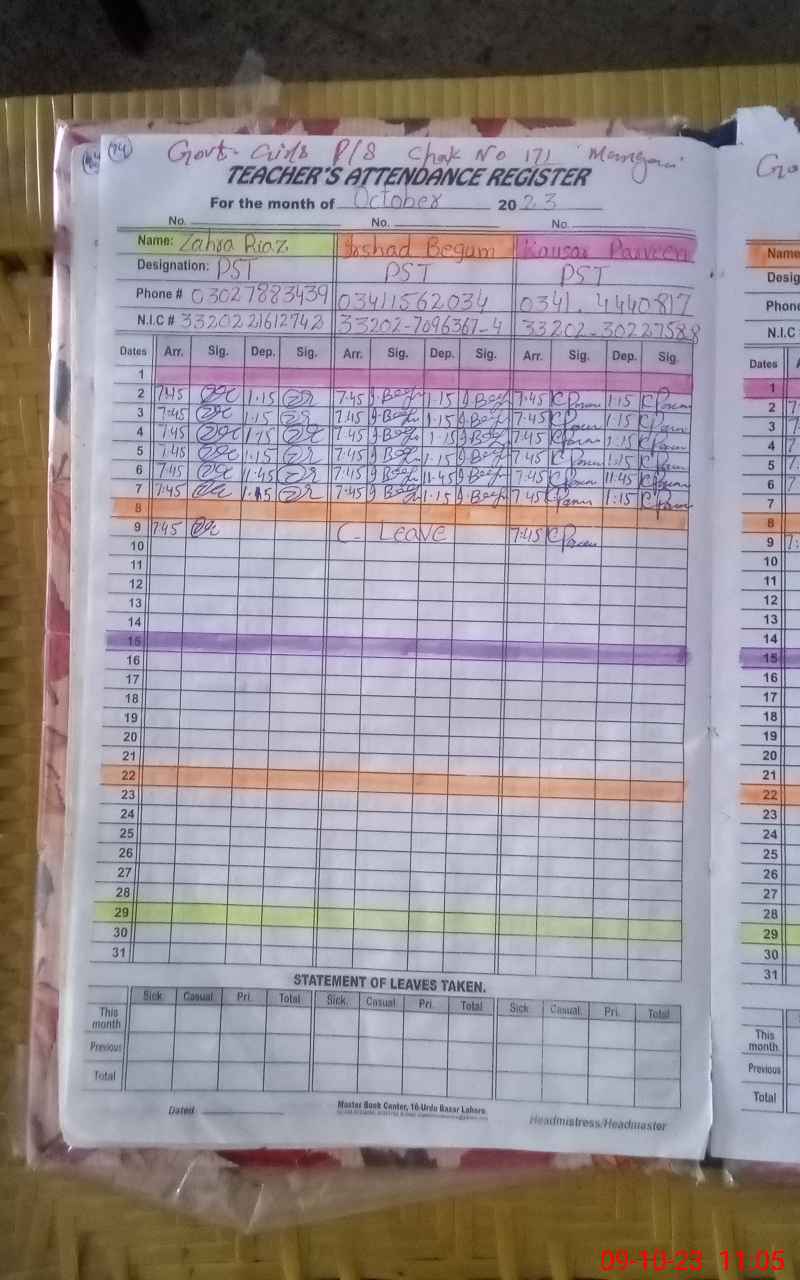 74
Govt. Girls P/S Chak No 171
TEACHER'S ATTENDANCE REGISTER
For the month of October 2023
No. No. No.
Name: Zahra Riaz Irshad Begum Kausar Parveen
Designation: PST PST PST
Phone # 03027883439 03411562034 0341.4440817
N.I.C # 3320221612742 33202-7096367-4 33202-30227588
Dates Arr. Sig. Dep. Sig. Arr. Sig. Dep. Sig. Arr. Sig. Dep. Sig.
1
2 7:45 1:15 7:45 1:15 7:45 1:15
3 7:45 1:15 7:45 1:15 7:45 1:15
4 7:45 1:15 7:45 1:15 7:45 1:15
5 7:45 1:15 7:45 1:15 7:45 1:15
6 7:45 11:45 7:45 11:45 7:45 11:45
7 7:45 1:15 7:45 1:15 7:45 1:15
8
9 7:45 C. Leave 7:45
10
11
12
13
14
15
16
17
18
19
20
21
22
23
24
25
26
27
28
29
30
31
STATEMENT OF LEAVES TAKEN.
Sick. Casual. Pri. Total Sick. Casual. Pri. Total Sick Casual. Pri. Total
This month
Previous
Total
Dated
Master Book Center, 16-Urdu Bazar Lahore
Headmistress/Headmaster
Go
Name
Desig
Phone
N.I.C
Dates
1
2 7
3
4
5
6 7
7
8
9
10
11
12
13
14
15
16
17
18
19
20
21
22
23
24
25
26
27
28
29
30
31
This month
Previous
Total
09-10-23 11:05